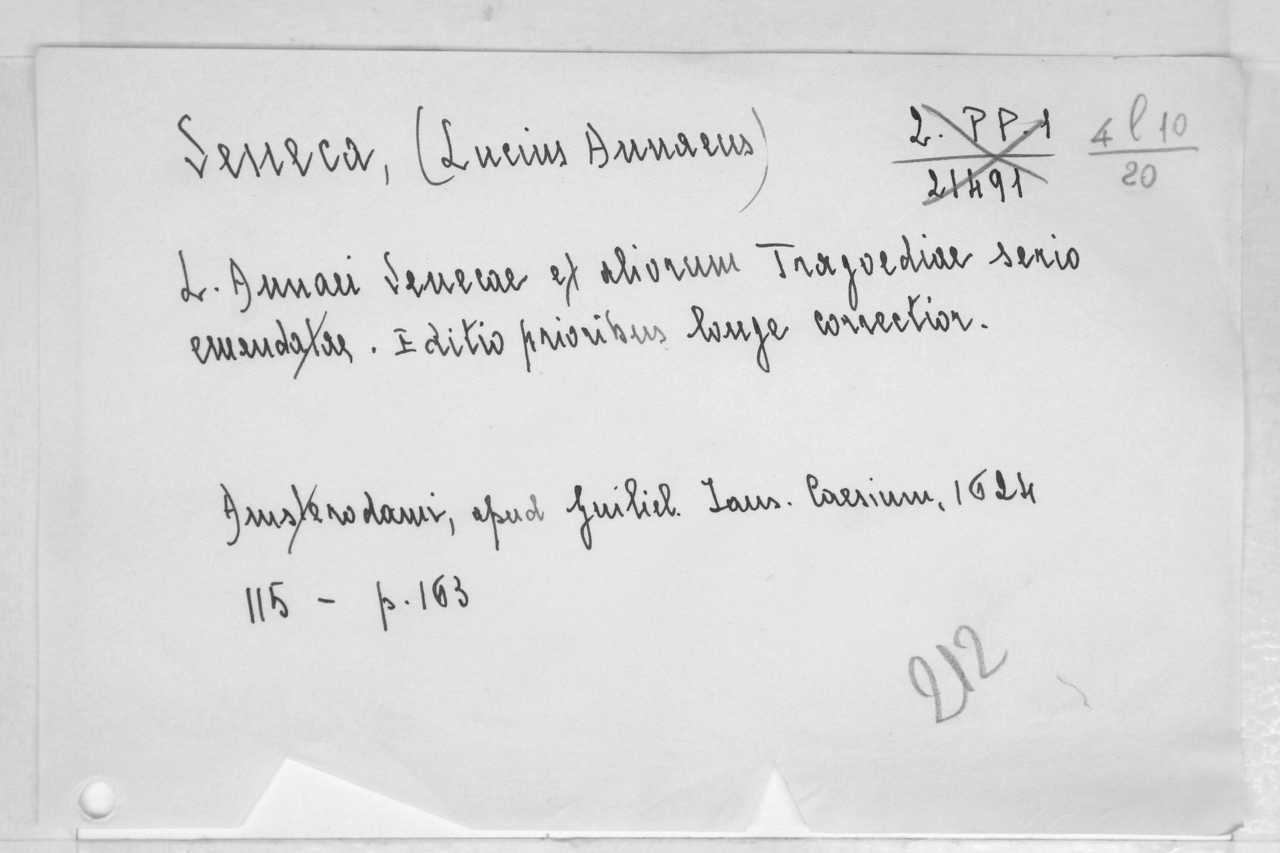 Seneca, (Lucius Annaeus)
2. PP. 1
21491
4 l 10
20
L. Annaei Senecae et aliorum Tragoediae serio
emendatae. Editio prioribus longe correctior.
Amsterodami, apud Guiliel. Ians. Caesium, 1624
115 - p. 163
212